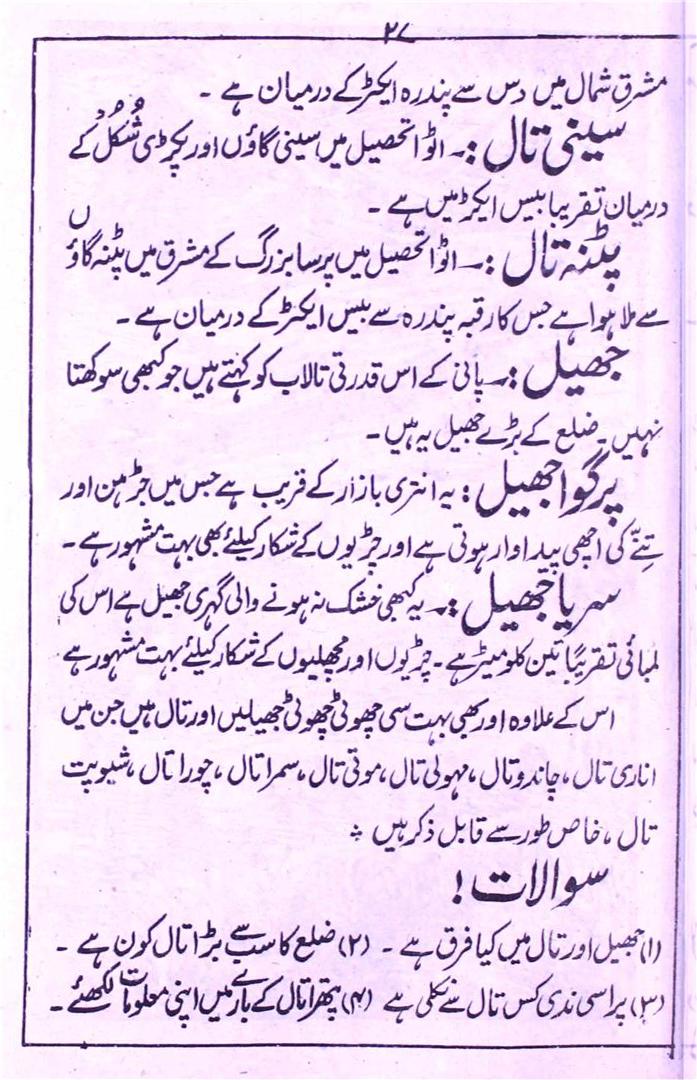 ۲۷
مشرق شمال میں دس سے پندرہ ایکڑ کے درمیان ہے ۔
سینی تال :۔ اٹوا تحصیل میں سینی گاؤں اور پکڑی شُکُل کے
درمیان تقریبا بیس ایکڑ میں ہے ۔
پٹنہ تال :۔ اٹوا تحصیل میں پرسا بزرگ کے مشرق میں پٹنہ گاؤں
سے ملا ہوا ہے جس کا رقبہ پندرہ سے بیس ایکڑ کے درمیان ہے ۔
جھیل :۔ پانی کے اس قدرتی تالاب کو کہتے ہیں جو کبھی سوکھتا
نہیں ۔ ضلع کے بڑے جھیل یہ ہیں ۔
پرگوا جھیل : یہ انتری بازار کے قریب ہے جس میں جڑہن اور
تِنّے کی اچھی پیداوار ہوتی ہے اور چڑیوں کے شکار کیلئے بھی بہت مشہور ہے ۔
سریا جھیل :۔ یہ کبھی خشک نہ ہونے والی گہری جھیل ہے اس کی
لمبائی تقریبًا تین کلومیٹر ہے ۔ چڑیوں اور مچھلیوں کے شکار کیلئے بہت مشہور ہے
اس کے علاوہ اور بھی بہت سی چھوٹی چھوٹی جھیلیں اور تال ہیں جن میں
اناری تال ، چاندو تال ، مہولی تال ، موتی تال ، سمرا تال ، چورا تال ، شیوپت
تال ، خاص طور سے قابل ذکر ہیں ؞
سوالات !
(۱) جھیل اور تال میں کیا فرق ہے ۔ (۲) ضلع کا سب سے بڑا تال کون ہے ۔
(۳) پراسی ندی کس تال سے نکلی ہے (۴) پتھرا تال کے بارے میں اپنی معلومات لکھئے ۔